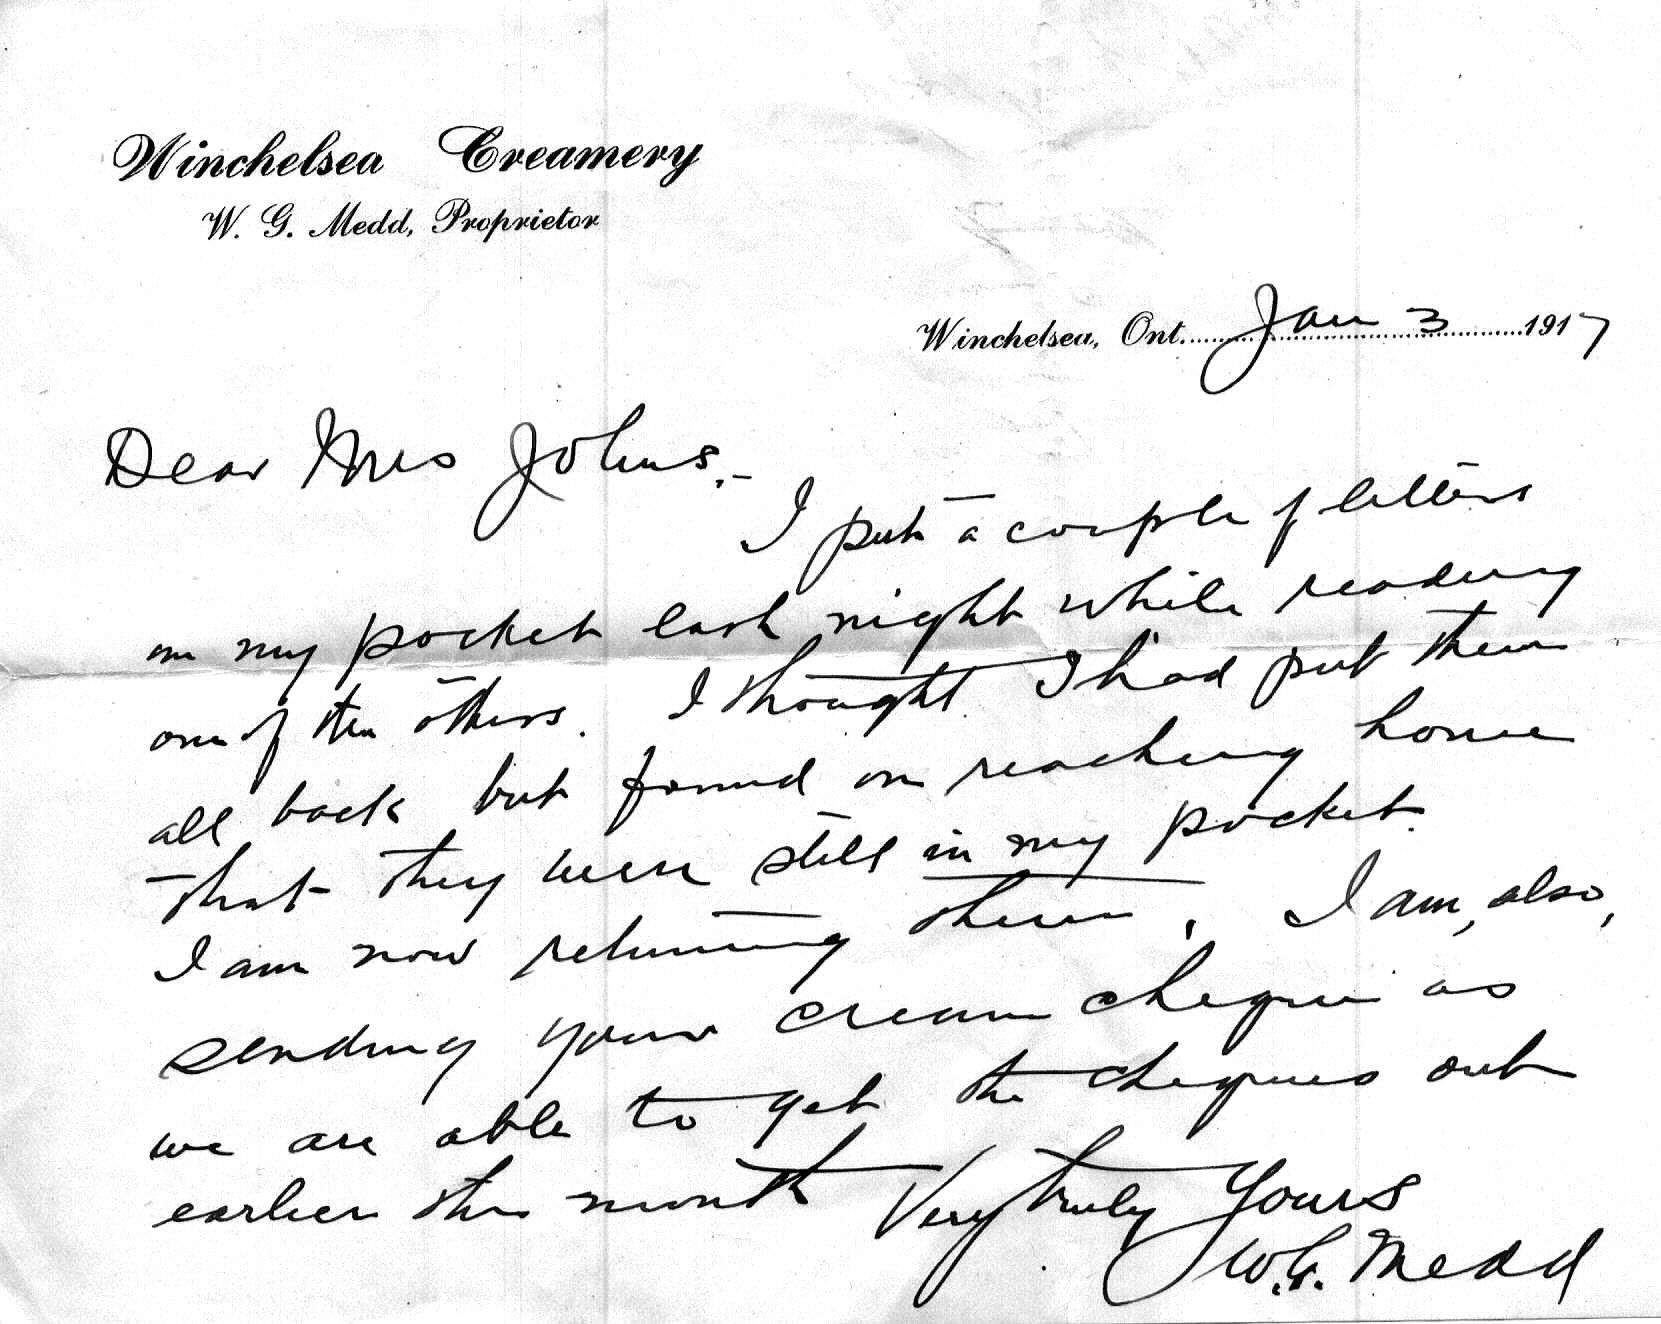 Winchelsea Creamery
W. G. Medd, Proprietor
Winchelsea, Ont. Jan 3 1917
Dear Mrs Johns.-
I put a couple of letters
in my pocket last night while reading
one of the others. I thought I had put them
all back but found on reaching home
that they were still in my pocket.
I am now returning them. I am, also,
sending your cream cheque as
we are able to get the cheques out
earlier this month
Very truly Yours
W.G. Medd